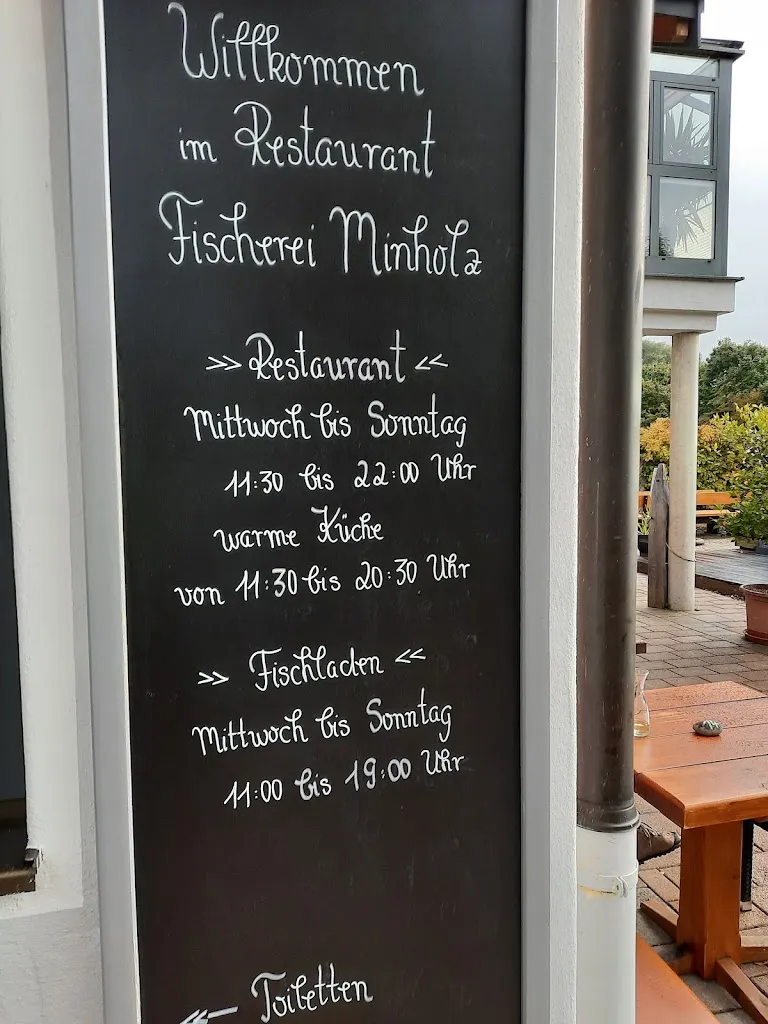 Willkommen
im Restaurant
Fischerei Minholz
>> Restaurant <<
Mittwoch bis Sonntag
11:30 bis 22:00 Uhr
warme Küche
von 11:30 bis 20:30 Uhr
>> Fischladen <<
Mittwoch bis Sonntag
11:00 bis 19:00 Uhr
Toiletten